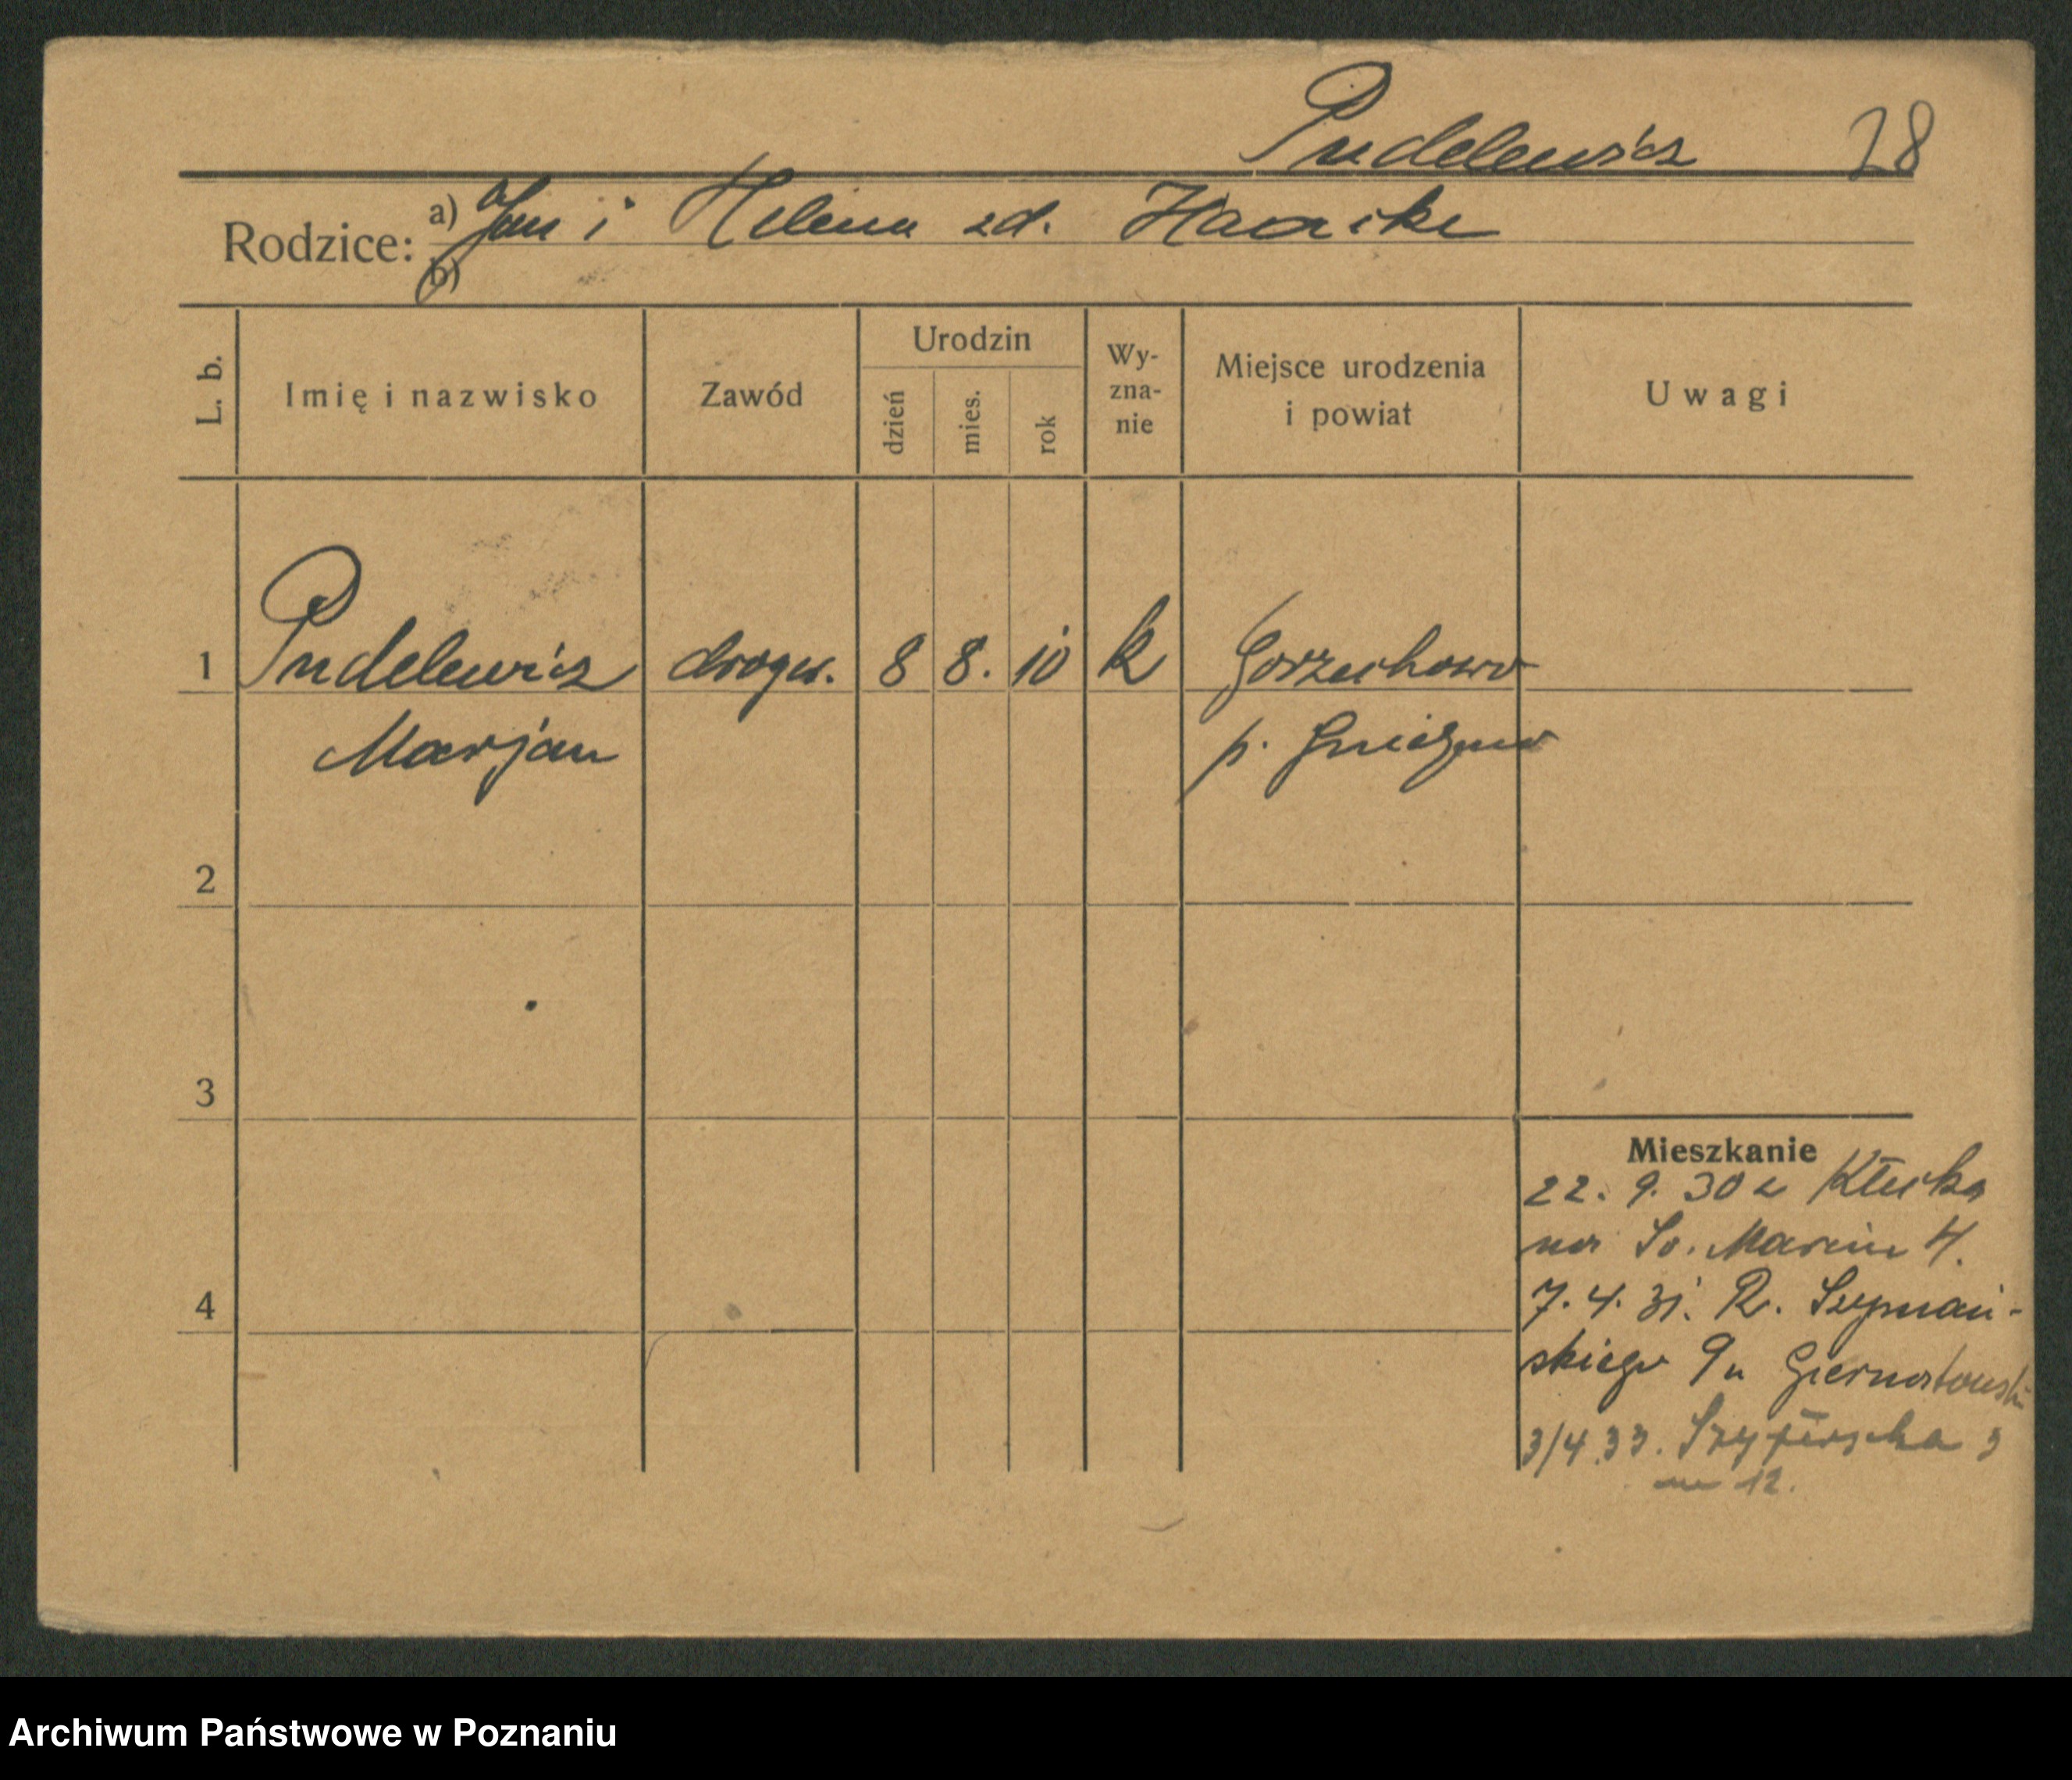 Pudelewicz 28
Rodzice: a) Jan i Helena zd. Haacke
b)
L. b. Imię i nazwisko Zawód Urodzin dzień mies. rok Wy-zna-nie Miejsce urodzenia i powiat Uwagi
1 Pudelewicz droger. 8 8. 10 k Gorzuchowo
Marjan p. Gniezno
2
3
4
Mieszkanie
22. 9. 30 z Kłecka
na Św. Marcin 4.
7. 4. 31. R. Szymań-
skiego 9 u
3/4.33. Szyperska 3
m 12.
Archiwum Państwowe w Poznaniu